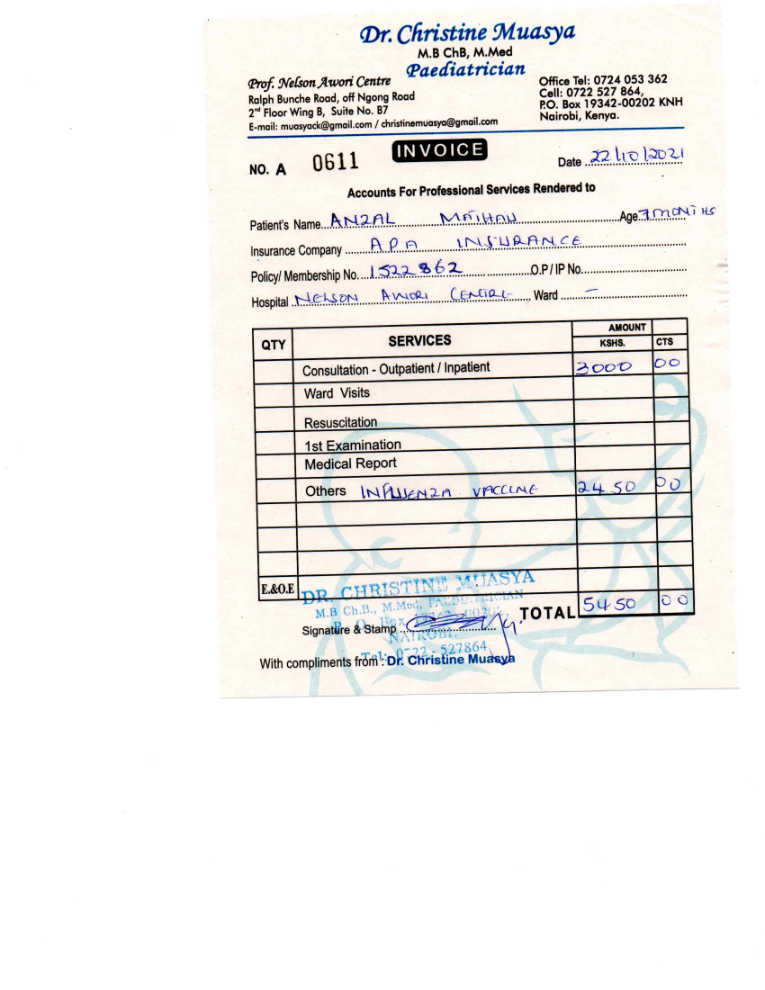 Dr. Christine Muasya
M.B ChB, M.Med
Paediatrician
Prof. Nelson Awori Centre
Ralph Bunche Road, off Ngong Road
2nd Floor Wing B, Suite No. B7
E-mail: muasyack@gmail.com / christinemuasya@gmail.com
Office Tel: 0724 053 362
Cell: 0722 527 864,
P.O. Box 19342-00202 KNH
Nairobi, Kenya.
INVOICE
NO. A 0611
Date 22/10/2021
Accounts For Professional Services Rendered to
Patient's Name ANZAL Age 7 MONTHS
Insurance Company APA INSURANCE
Policy/ Membership No. 1522862 O.P / IP No.
Hospital NELSON AWORI CENTRE Ward –
QTY SERVICES AMOUNT
KSHS. CTS
Consultation - Outpatient / Inpatient 3000 00
Ward Visits
Resuscitation
1st Examination
Medical Report
Others INFLUENZA VACCINE 2450 00
E.&O.E
DR. CHRISTINE MUASYA
M.B Ch.B., M.Med, PAEDIATRICIAN
TOTAL 5450 00
Signature & Stamp
NAIROBI
Tel: 0722 - 527864
With compliments from : Dr. Christine Muasya